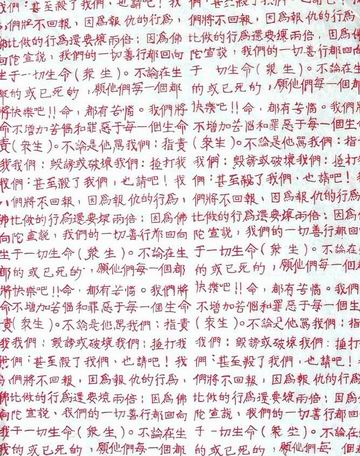 們：甚至殺了我們，也請吧！我 們：甚至殺了我們，也請吧！我
們將不回報，因爲報仇的行爲， 們將不回報，因爲報仇的行爲，
比做的行爲還要壞兩倍；因爲佛 比做的行爲還要壞兩倍；因爲佛
向陀宣說，我們的一切善行都回向 陀宣說，我們的一切善行都回向
于一切生命(衆生)。不論在生 于一切生命(衆生)。不論在生
的或已死的，願他們每一個都 的或已死的，願他們每一個都
將快樂吧!!命，都有苦惱。我們將 快樂吧!!命，都有苦惱。我們將
命不增加苦惱和罪惡于每一個生命 不增加苦惱和罪惡于每一個生命
責(衆生)。不論是他罵我們：指責 (衆生)。不論是他罵我們：指責
我我們；毀謗或破壞我們：捶打我 我們；毀謗或破壞我們：捶打我
們：甚至殺了我們，也請吧！我 們：甚至殺了我們，也請吧！我
們將不回報，因爲報仇的行爲， 們將不回報，因爲報仇的行爲，
佛比做的行爲還要壞兩倍；因爲佛 比做的行爲還要壞兩倍；因爲佛
向陀宣說，我們的一切善行都回向 陀宣說，我們的一切善行都回向
于一切生命(衆生)。不論在生 于一切生命(衆生)。不論在生
的或已死的，願他們每一個都 的或已死的，願他們每一個都
將快樂吧!!命，都有苦惱。我們將 快樂吧!!命，都有苦惱。我們將
命不增加苦惱和罪惡于每一個生命 不增加苦惱和罪惡于每一個生命
責(衆生)。不論是他罵我們：指責 (衆生)。不論是他罵我們：指責
我我們；毀謗或破壞我們：捶打我 我們；毀謗或破壞我們：捶打我
們：甚至殺了我們，也請吧！我 們：甚至殺了我們，也請吧！我
們將不回報，因爲報仇的行爲， 們將不回報，因爲報仇的行爲，
佛比做的行爲還要壞兩倍；因爲佛 比做的行爲還要壞兩倍；因爲佛
向陀宣說，我們的一切善行都回向 陀宣說，我們的一切善行都回向
于一切生命(衆生)。不論在生 于一切生命(衆生)。不論在生
的或已死的，願他們每一個都 的或已死的，願他們每一個都